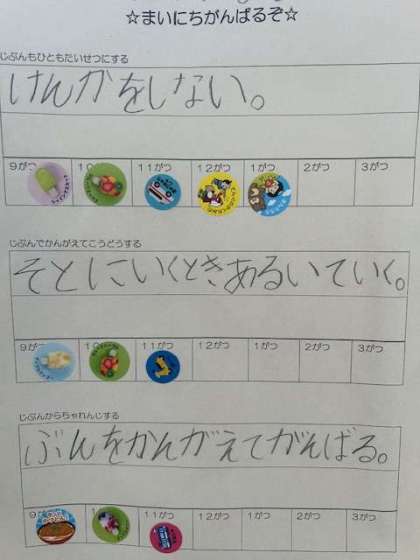 ☆まいにちがんばるぞ☆
じぶんもひともたいせつにする
けんかをしない。
9がつ 10 11がつ 12がつ 1がつ 2がつ 3がつ
じぶんでかんがえてこうどうする
そとにいくときあるいていく。
9がつ 10 11がつ 12がつ 1がつ 2がつ 3がつ
じぶんからちゃれんじする
ぶんをかんがえてがんばる。
9 10 11がつ 12がつ 1がつ 2がつ 3がつ